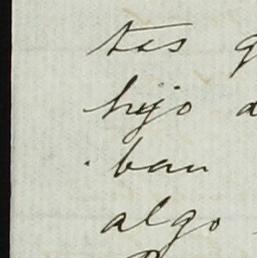 tas
hijo
ban
algo